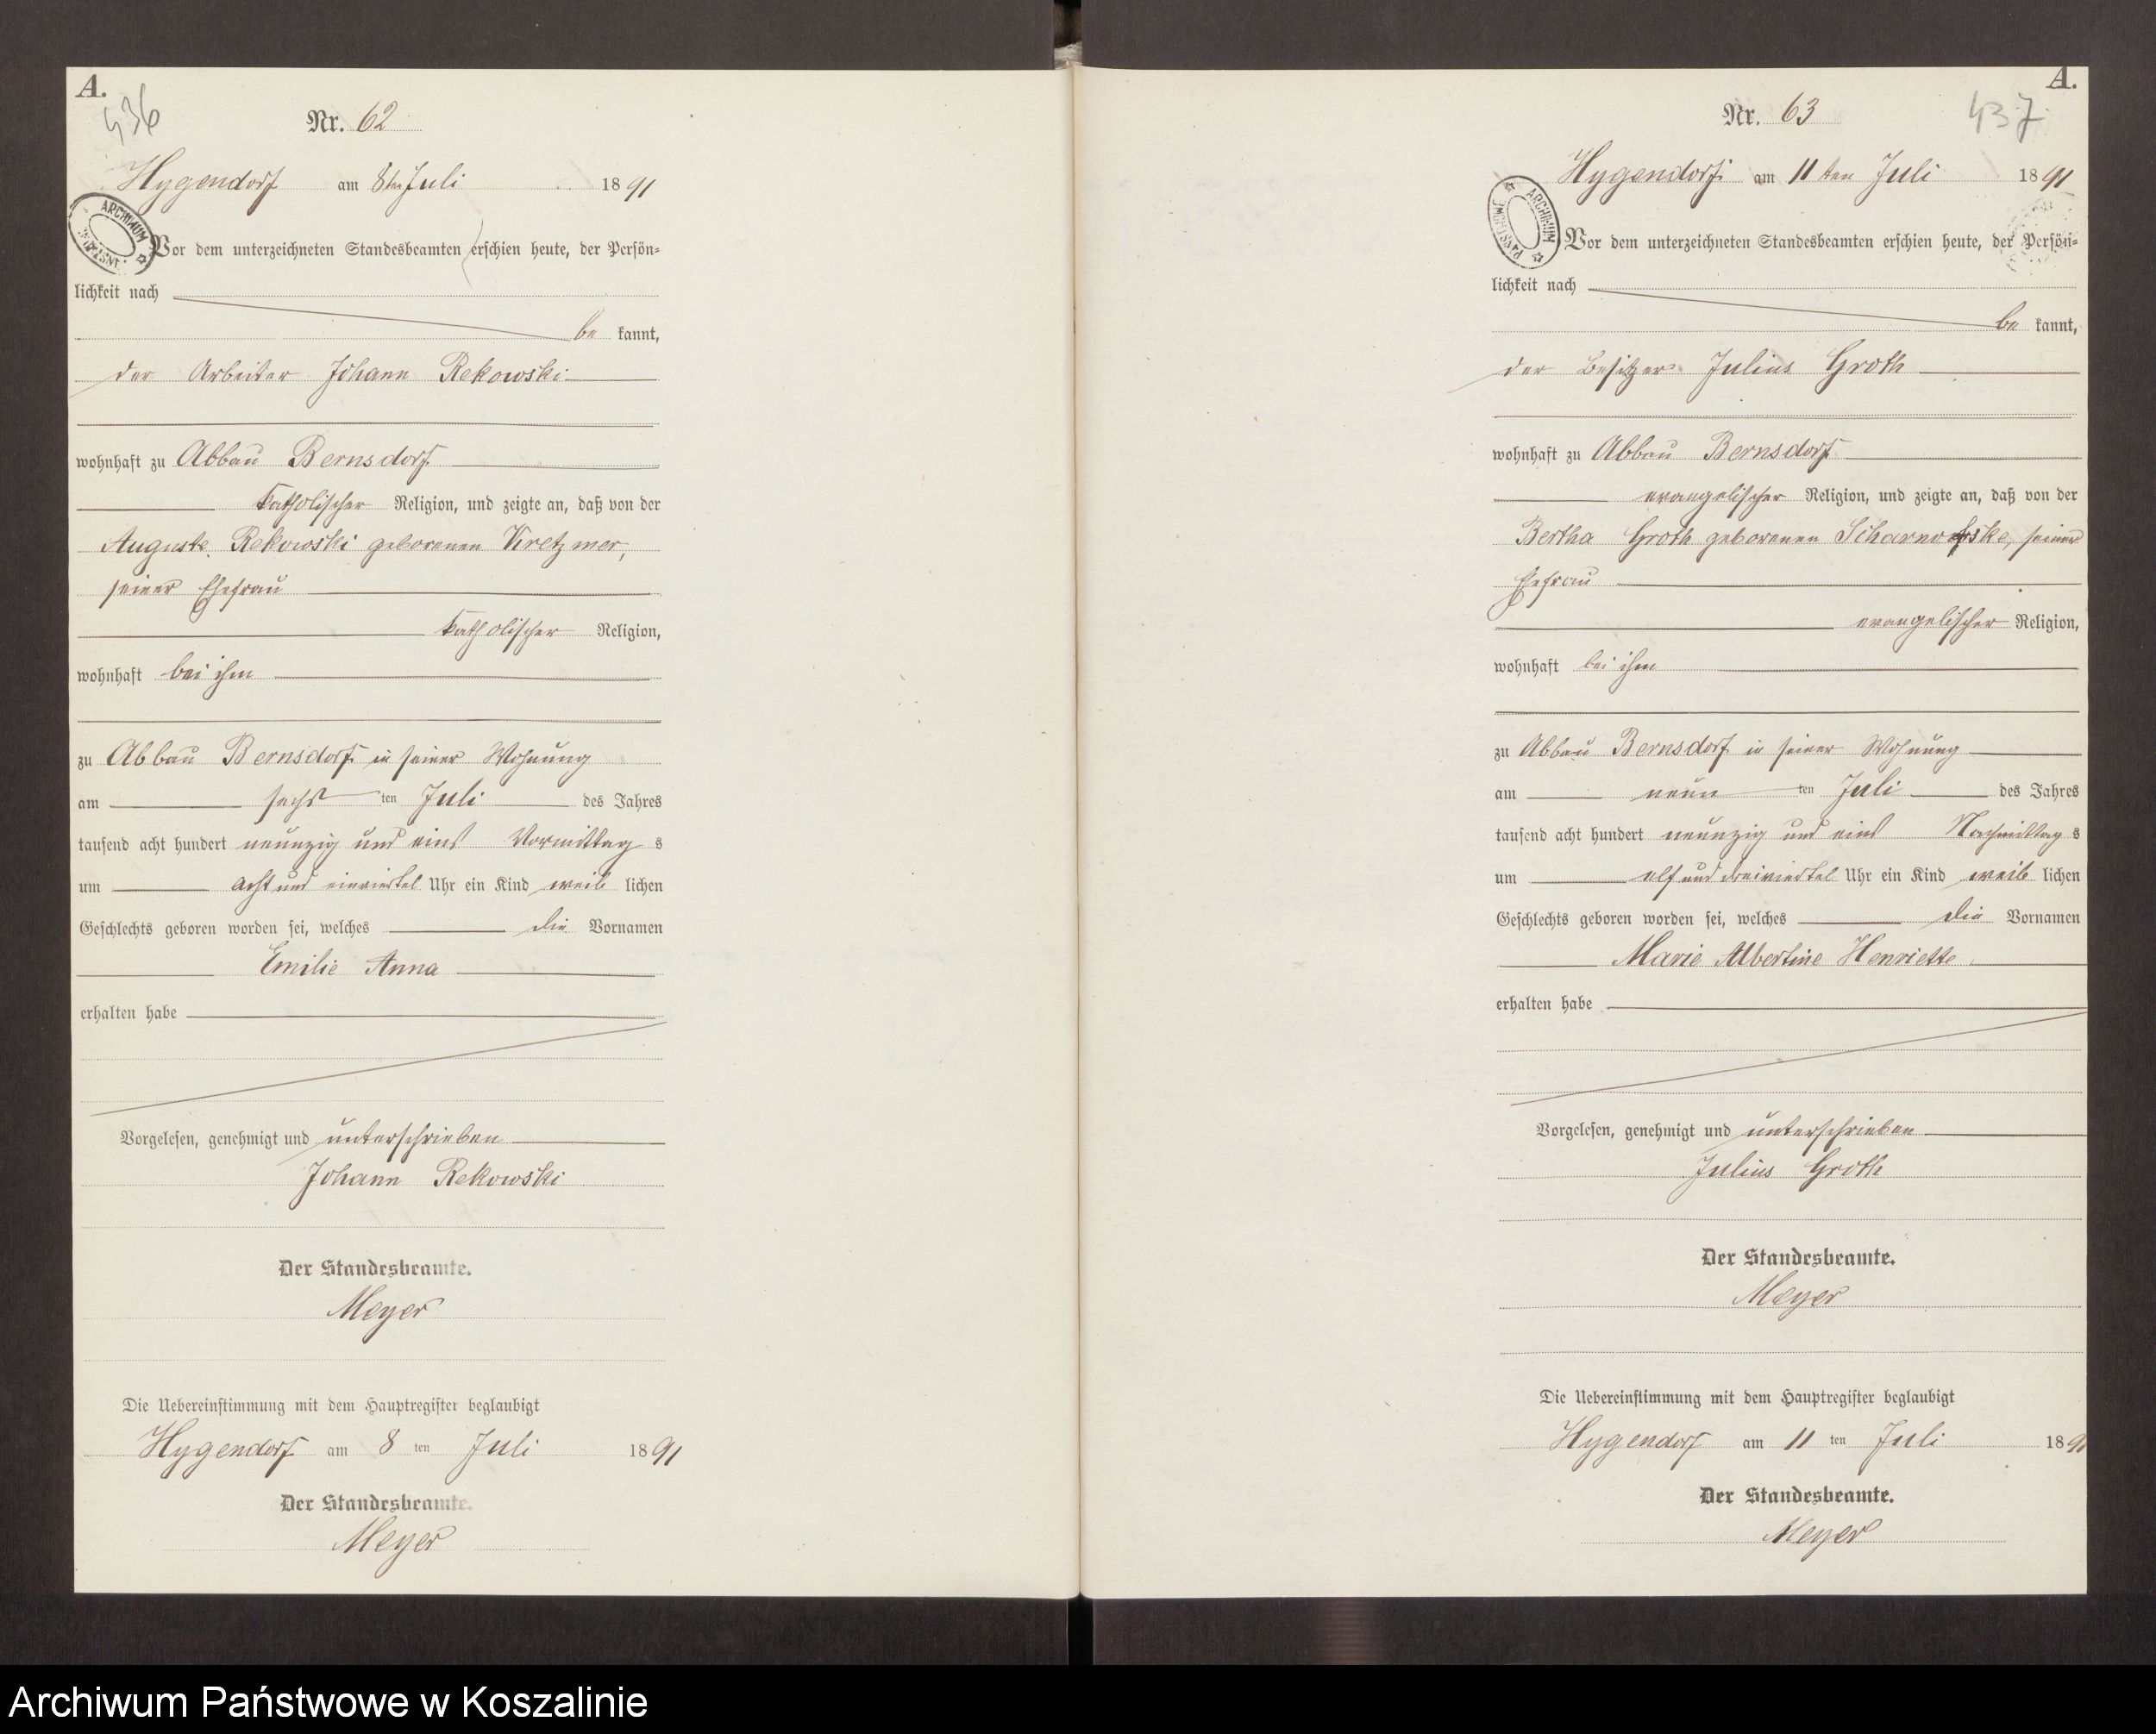 A.
436
Nr. 62
Hygendorf am 8ten Juli 1891
ARCHIWUM
Vor dem unterzeichneten Standesbeamten erschien heute, der Persön-
lichkeit nach
be kannt,
der Arbeiter Johann Rekowski
wohnhaft zu Abbau Bernsdorf
katholischer Religion, und zeigte an, daß von der
Auguste Rekowski geborenen Kretzmer,
seiner Ehefrau
katholischer Religion,
wohnhaft bei ihm
zu Abbau Bernsdorf in seiner Wohnung
am sechs ten Juli des Jahres
tausend acht hundert neunzig und eins Vormittag s
um acht und einviertel Uhr ein Kind weib lichen
Geschlechts geboren worden sei, welches die Vornamen
Emilie Anna
erhalten habe
Vorgelesen, genehmigt und unterschrieben
Johann Rekowski
Der Standesbeamte.
Meyer
Die Uebereinstimmung mit dem Hauptregister beglaubigt
Hygendorf am 8 ten Juli 1891
Der Standesbeamte.
Meyer
A.
437
Nr. 63
Hygendorf am 11ten Juli 1891
ARCHIWUM PAŃSTWOWE
Vor dem unterzeichneten Standesbeamten erschien heute, der Persön-
lichkeit nach
be kannt,
der Besitzer Julius Groth
wohnhaft zu Abbau Bernsdorf
evangelischer Religion, und zeigte an, daß von der
Bertha Groth geborenen seiner
Ehefrau
evangelischer Religion,
wohnhaft bei ihm
zu Abbau Bernsdorf in seiner Wohnung
am neun ten Juli des Jahres
tausend acht hundert neunzig und eins Nachmittag s
um elf und dreiviertel Uhr ein Kind weib lichen
Geschlechts geboren worden sei, welches die Vornamen
Marie Albertine Henriette
erhalten habe
Vorgelesen, genehmigt und unterschrieben
Julius Groth
Der Standesbeamte.
Meyer
Die Uebereinstimmung mit dem Hauptregister beglaubigt
Hygendorf am 11 ten Juli 1891
Der Standesbeamte.
Meyer
Archiwum Państwowe w Koszalinie